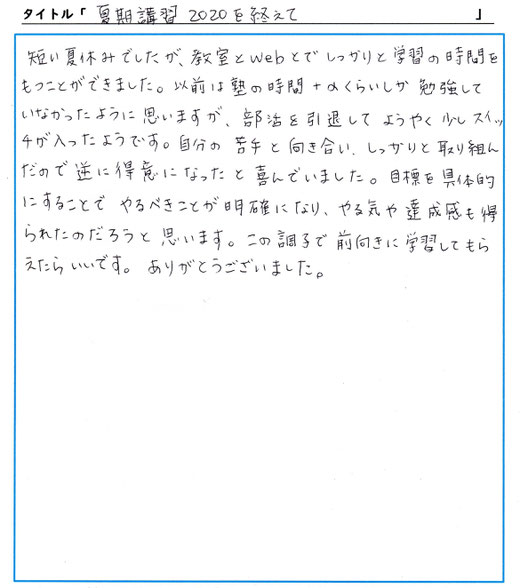 タイトル「夏期講習 2020を終えて」
短い夏休みでしたが、教室とWebとでしっかりと学習の時間を
もつことができました。以前は塾の時間+αくらいしか勉強して
いなかったように思いますが、部活を引退してようやく少しスイッ
チが入ったようです。自分の苦手と向き合い、しっかりと取り組ん
だので逆に得意になったと喜んでいました。目標を具体的
にすることでやるべきことが明確になり、やる気や達成感も得
られたのだろうと思います。この調子で前向きに学習してもら
えたらいいです。ありがとうございました。